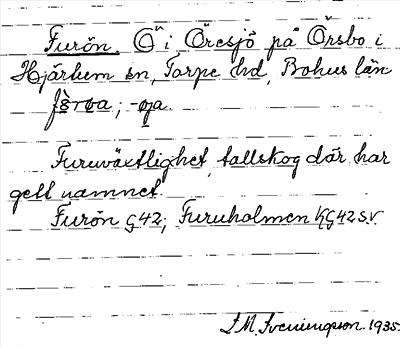 Furön. Ö i Öresjö på Örsbo i
Hjärtum sn, Torpe hd, Bohus län
fɵ̀rɵa; -øja.
Furuväxtlighet, tallskog där har
gett namnet.
Furön G42; Furuholmen KG42 SV.
J.M. Svenungson. 1935.